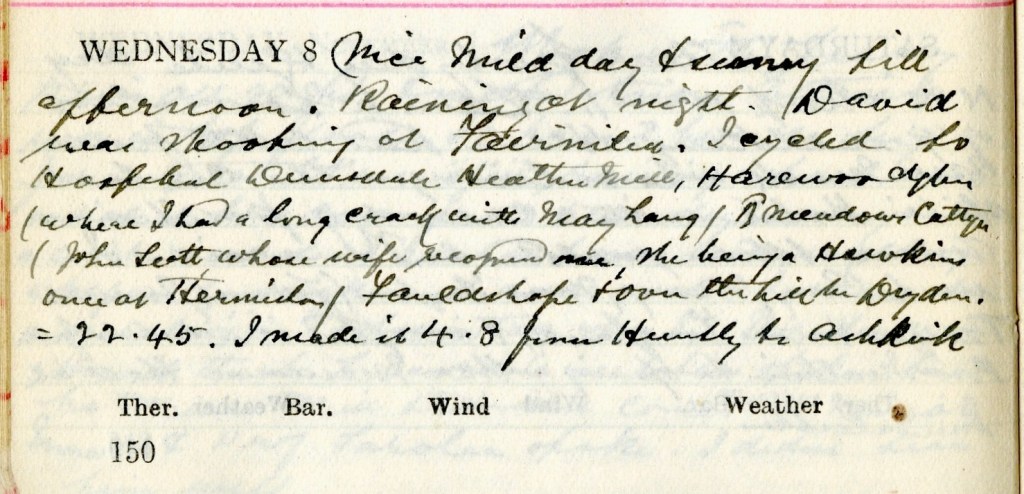 WEDNESDAY 8 Nice mild day & sunny till
afternoon. Raining at night. David
was shooting at Fairnilee. I cycled to
Hospital Dimsdale Heather Mill, Harewood glen
(where I had a long crack with May Lang) Meadows
(John Scott, whose wife recognised me, she being a Hawkins
once at Hermiston) Fauldshope & over the hill to Dryden.
= 22.45. I made it 4.8 from Huntly to Ashkirk
Ther. Bar. Wind Weather
150